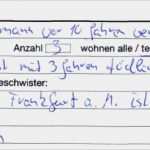 mann vor 10 Jahren ve
Anzahl 3 wohnen alle / te
mit 3 Jahren tödli
eschwister:
Frankfurt a. M. ist